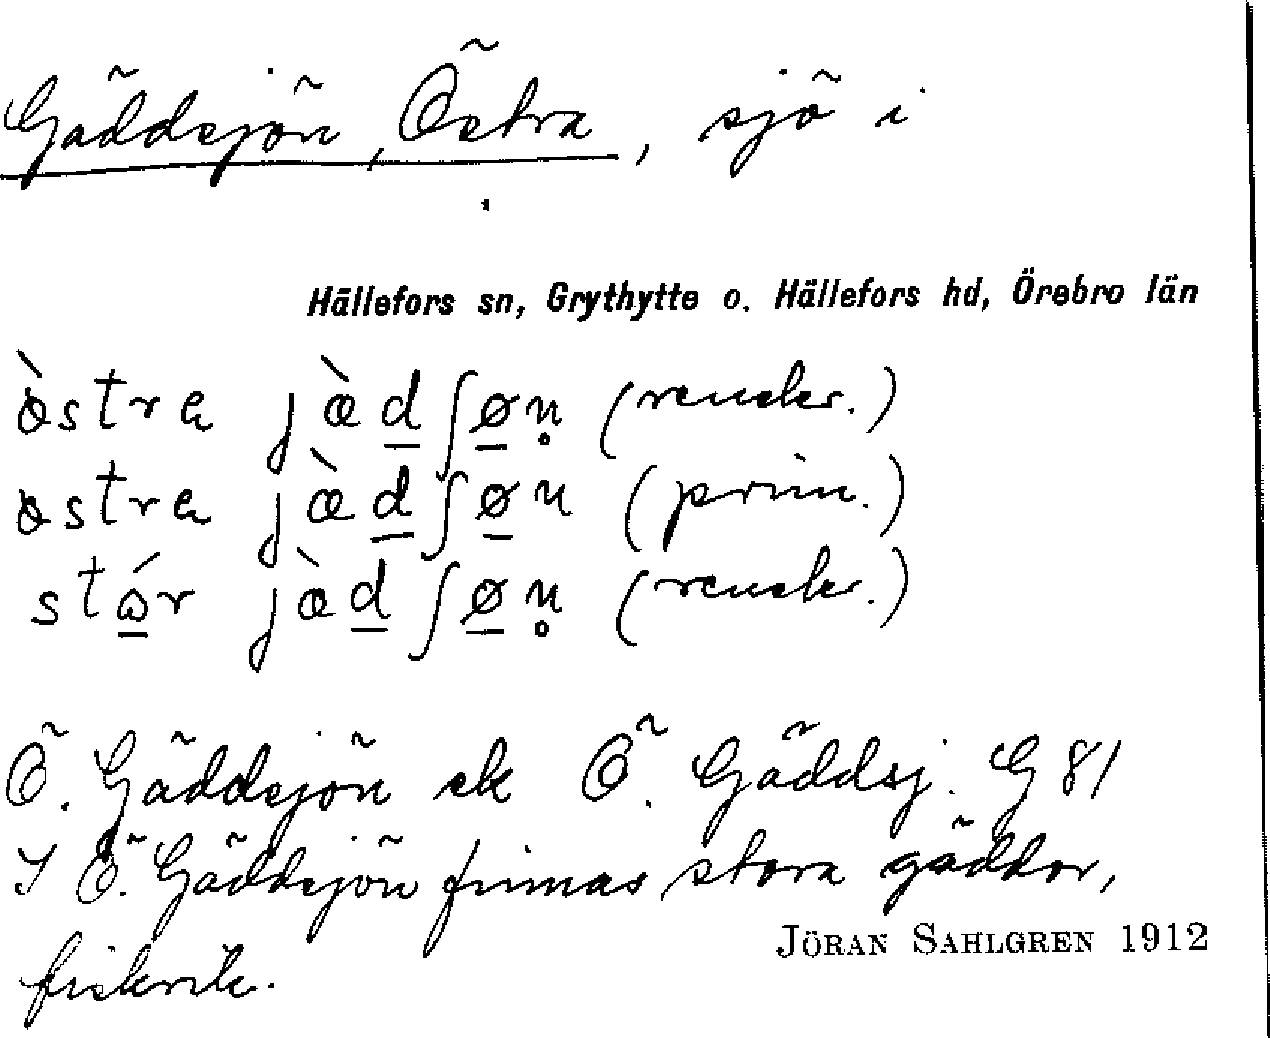 Gäddsjön, Östra, sjö i
Hällefors sn, Grythytte o. Hällefors hd, Örebro län
östra jæ̀dʃøn̥
östra jæ̀dʃøn (prim.)
jæ̀dʃøn̥
Ö. Gäddsjön ek Ö. Gäddsj. G 81
I Ö. Gäddsjön finnas stora gäddor,
fiskrik.
JÖRAN SAHLGREN 1912